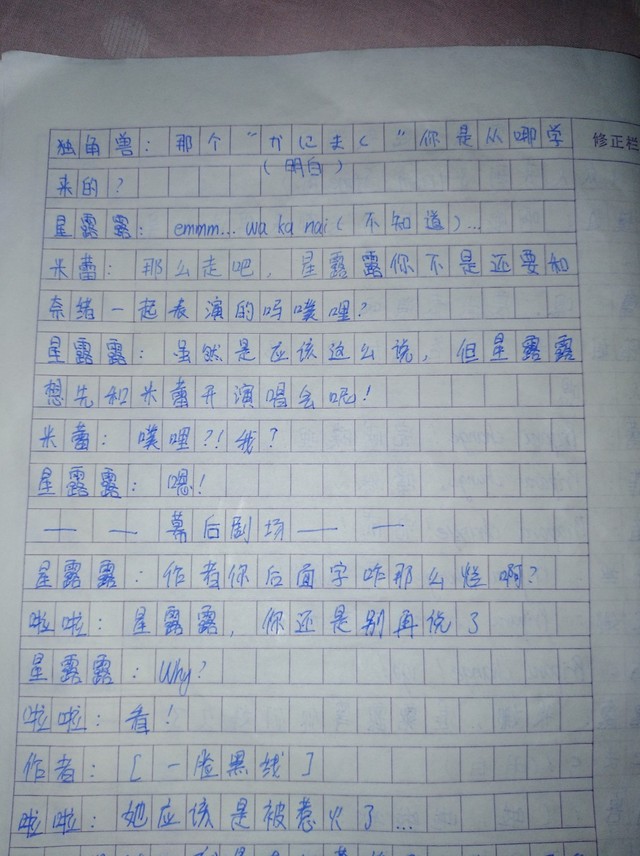 独角兽：那个"かにまく"你是从哪学
修正栏
（明白）
来的？
星露露：emmm...wa ka nai（不知道）...
米蕾：那么走吧，星露露你不是还要和
奈绪一起表演的吗噗哩？
星露露：虽然是应该这么说，但星露露
想先和米蕾开演唱会呢！
米蕾：噗哩？！我？
星露露：嗯！
—— 幕后剧场 ——
星露露：作者你后面字咋那么烂啊？
啦啦：星露露，你还是别再说了
星露露：Why?
啦啦：看！
作者：[一脸黑线]
啦啦：她应该是被惹火了...